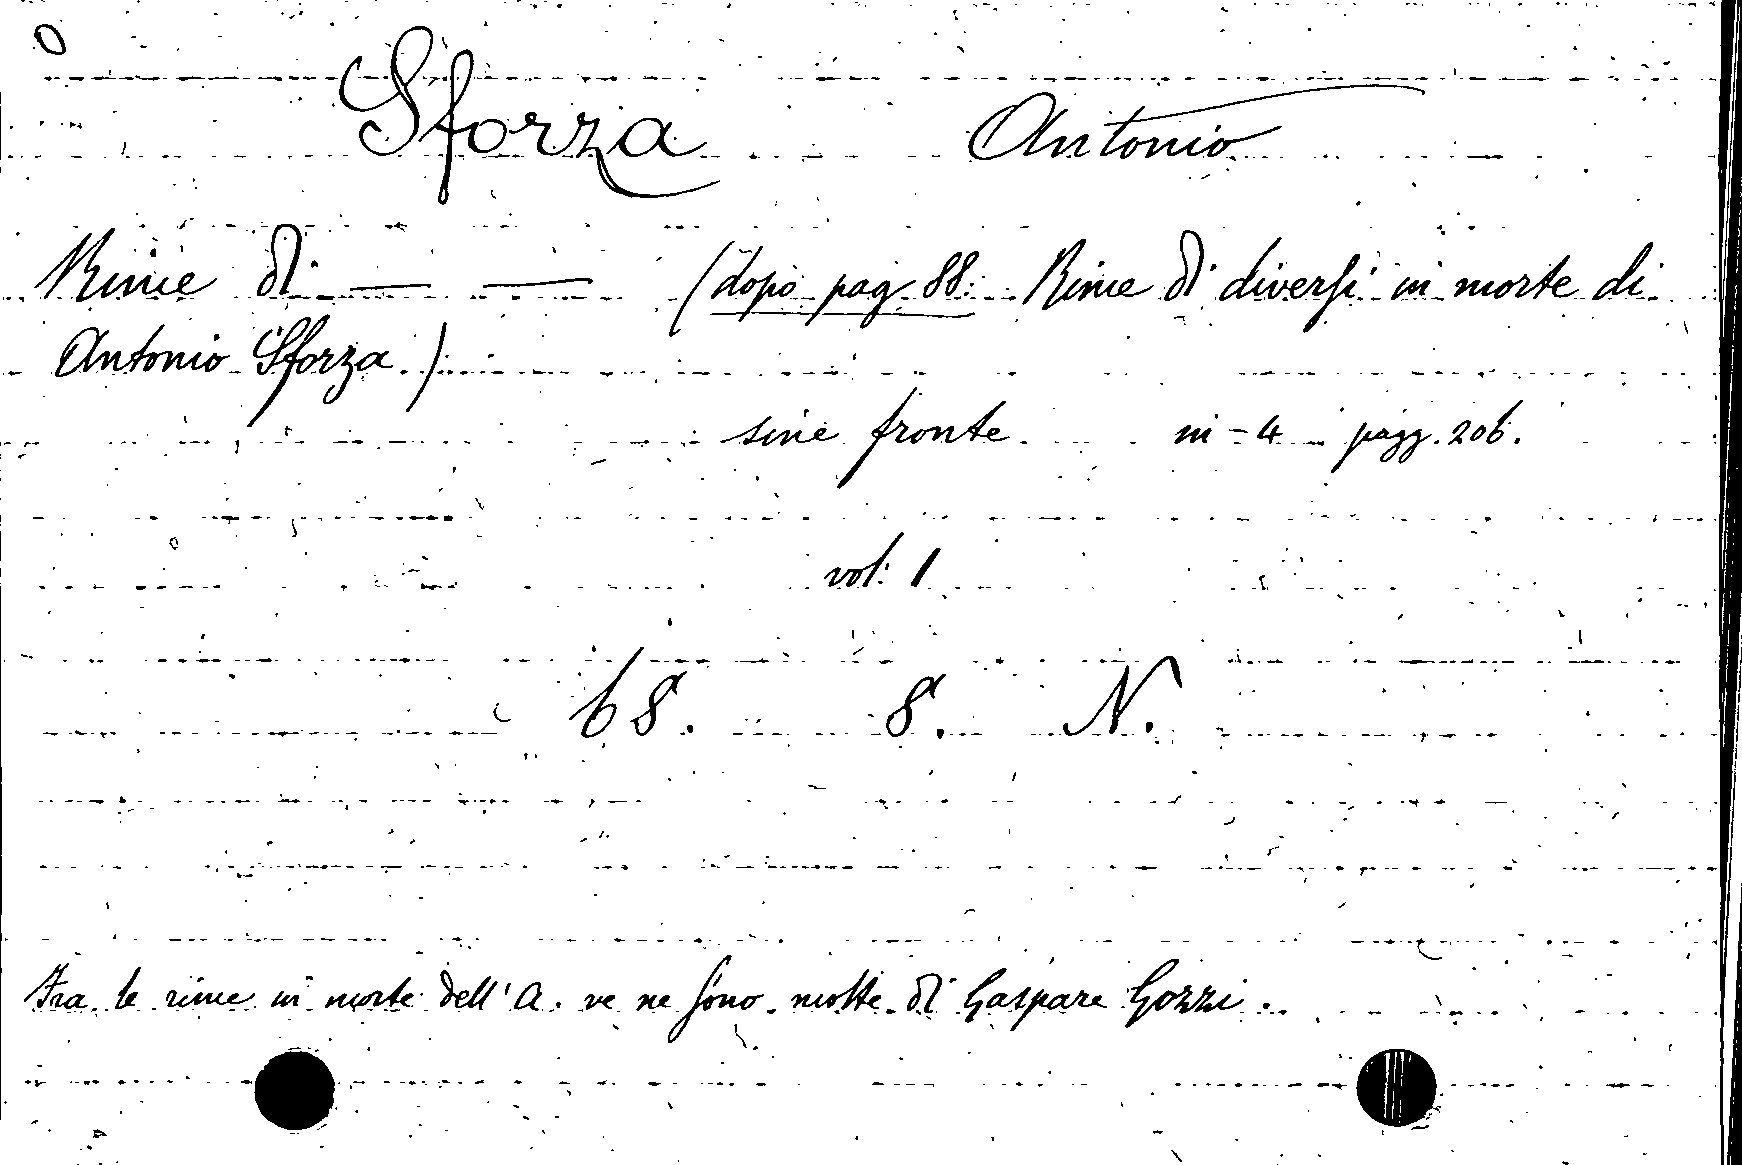 O
Sforza Antonio
Rime di — — (dopo pag. 88: Rime di diversi in morte di
Antonio Sforza.)
sine fronte in-4 pagg. 206.
vol: 1
68. 8. N.
Fra le rime in morte dell'A. ve ne sono molte di Gaspare Gozzi.